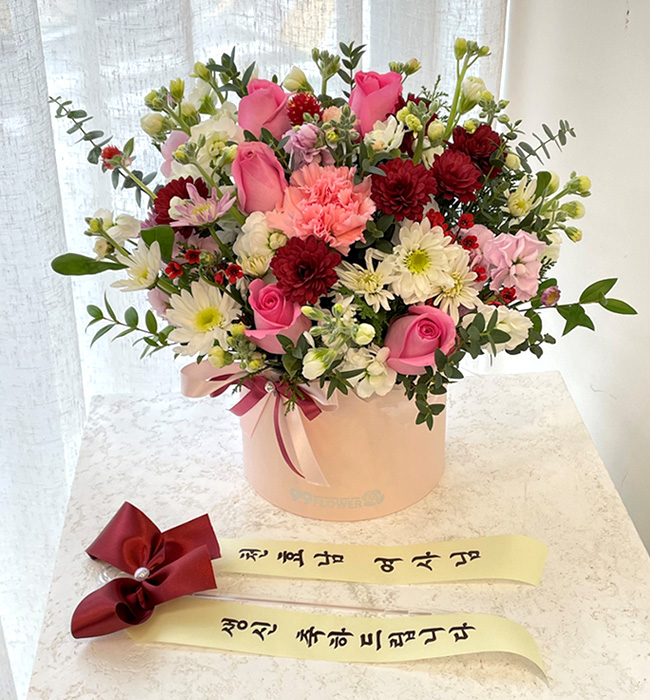 99FLOWER
천효남 여사님
생신 축하드립니다